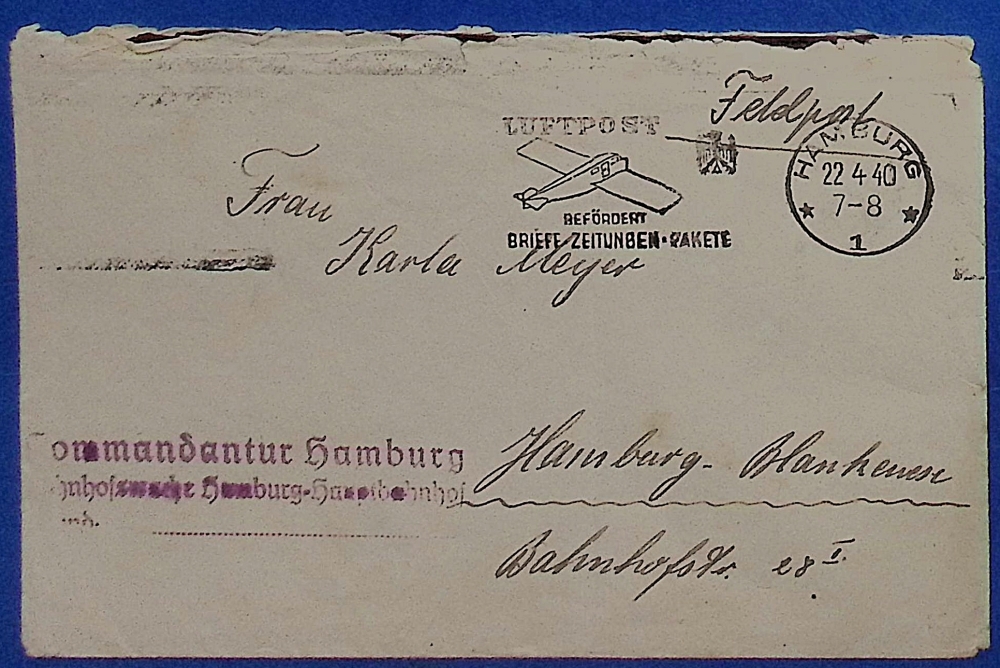 Feldpost
LUFTPOST
BEFÖRDERT
BRIEFE·ZEITUNGEN·PAKETE
HAMBURG
22 4 40
7-8
1
Frau
Karla Meyer
ommandantur Hamburg
hnhofswache Hamburg-Hauptbahnhof
Hamburg-Blankenese
Bahnhofstr. 28 I.